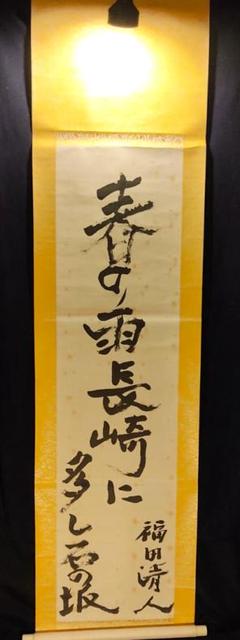 春の雨長崎に
多し石の坂
福田清人